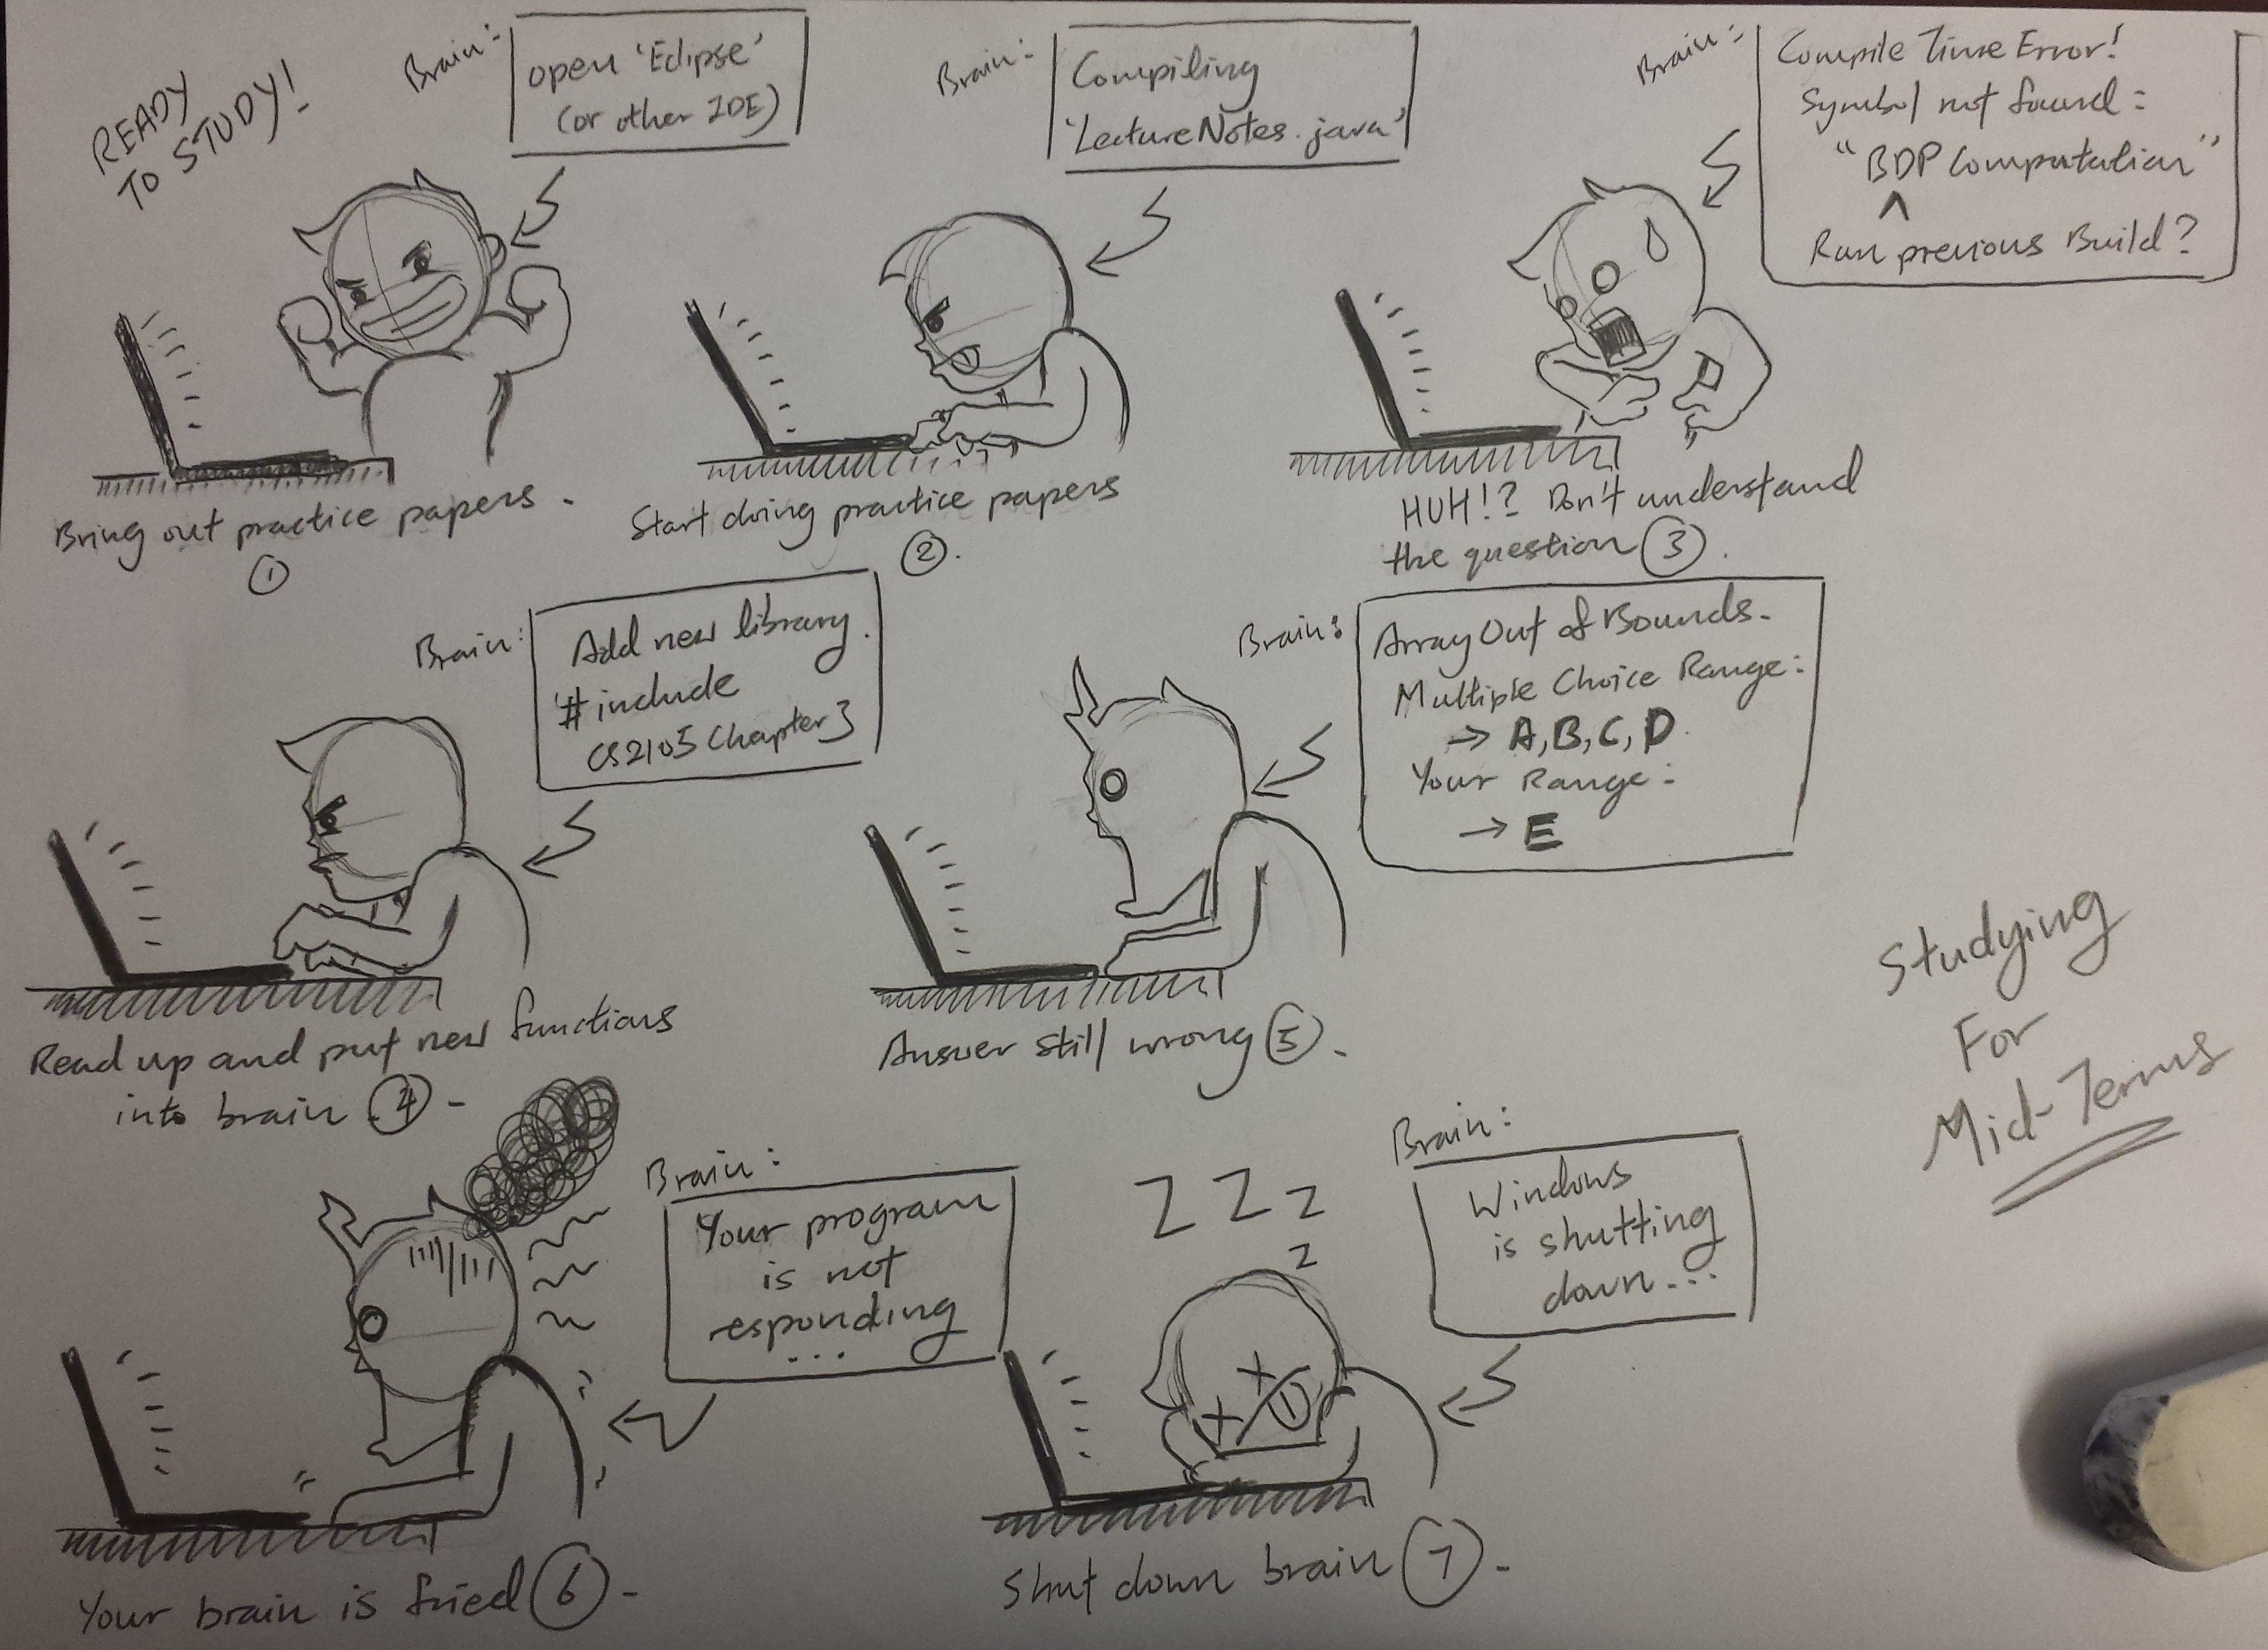 READY
TO STUDY!
Brain:
open 'Eclipse'
(or other IDE)
Bring out practice papers.
1
Brain:
Compiling
'LectureNotes.java'
Start doing practice papers
2.
Brain:
Compile Time Error!
Symbol not found:
"BDP Computation"
^
Run previous Build?
HUH!? Don't understand
the question 3.
Brain:
Add new library.
'#include
CS2105 Chapter3
Read up and put new functions
into brain 4.
Brain:
Array Out of Bounds.
Multiple Choice Range:
→ A, B, C, D.
Your Range:
→ E
Answer still wrong 5.
Studying
For
Mid-Terms
Brain:
Your program
is not
responding
...
Your brain is fried 6.
ZZZ
Z
Brain:
Windows
is shutting
down...
Shut down brain 7.